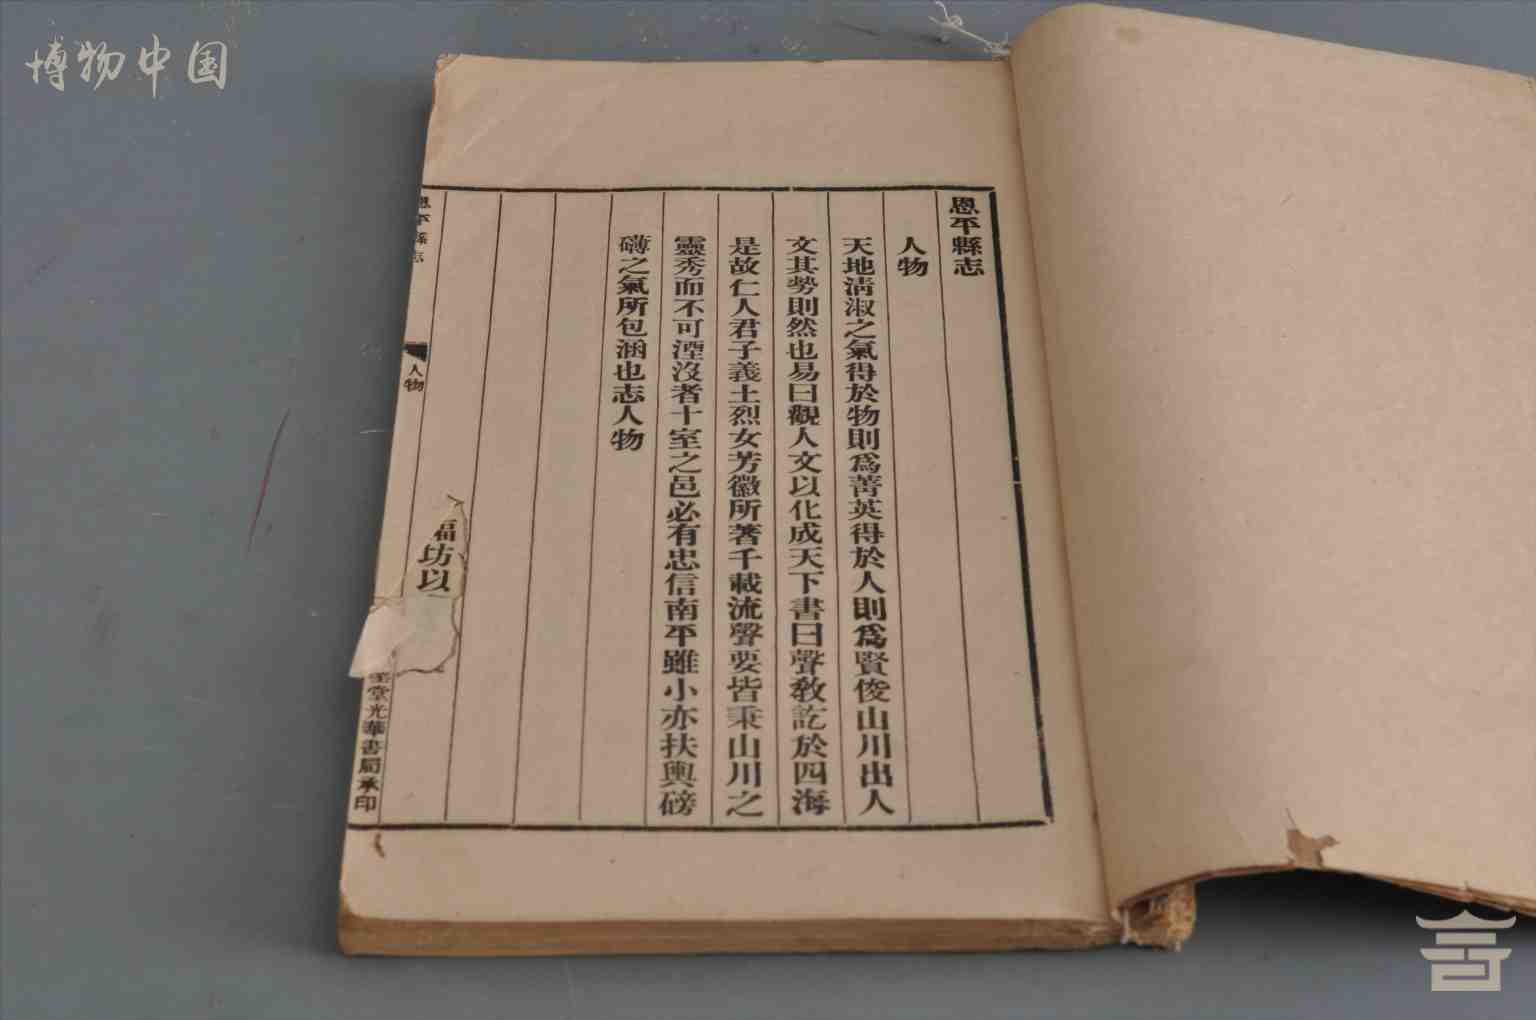 博物中国
恩平縣志
人物
天地清淑之氣得於物則爲菁英得於人則爲賢俊山川出人
文其勞則然也易曰觀人文以化成天下書曰聲教訖於四海
是故仁人君子義士烈女芳徽所著千載流聲要皆秉山川之
靈秀而不可湮沒者十室之邑必有忠信南平雖小亦扶輿磅
礴之氣所包涵也志人物
恩平縣志
人物
福坊以
堂光華書局承印